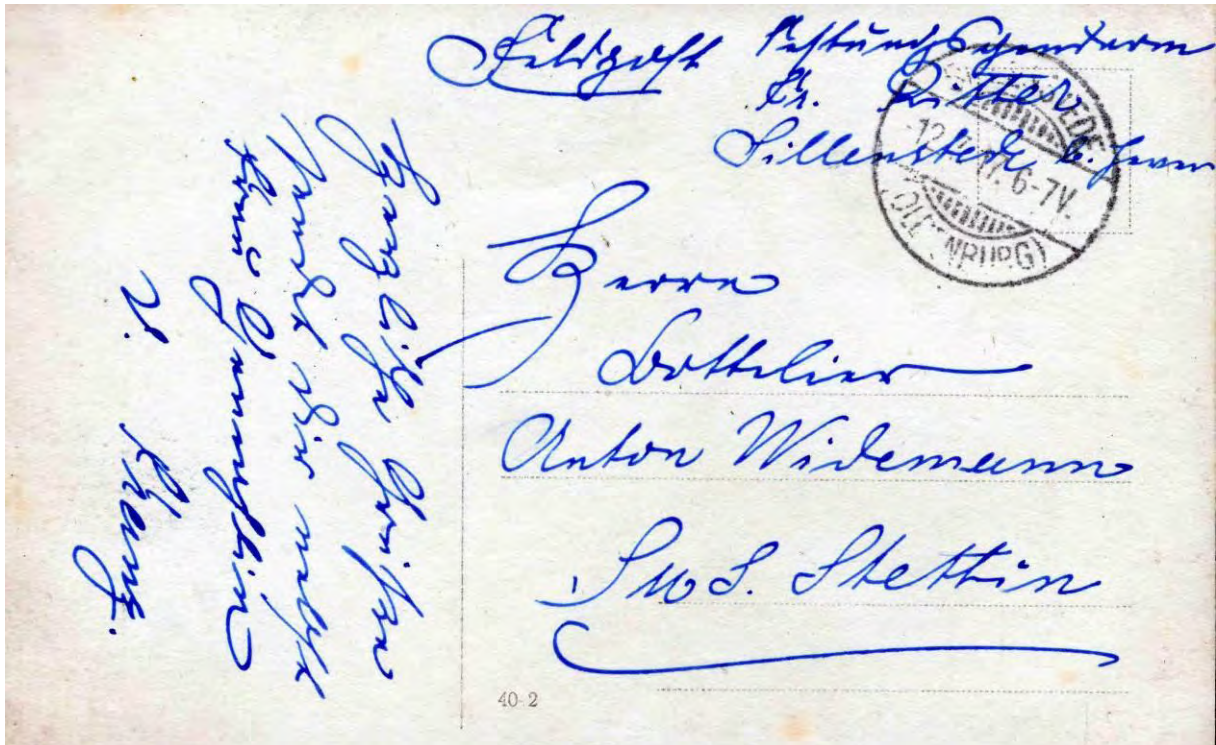 Feldpost Festungsgendarm
Fr. Ritter
Sillenstede b. Jever
SILLENSTEDE
17. 6-7V.
(OLDENBURG)
Herrn
Bottelier
Anton Widemann
SMS. Stettin
40-2
Herzliche Grüsse
sendet Dir nebst
Frau Gemahlin
Franz.